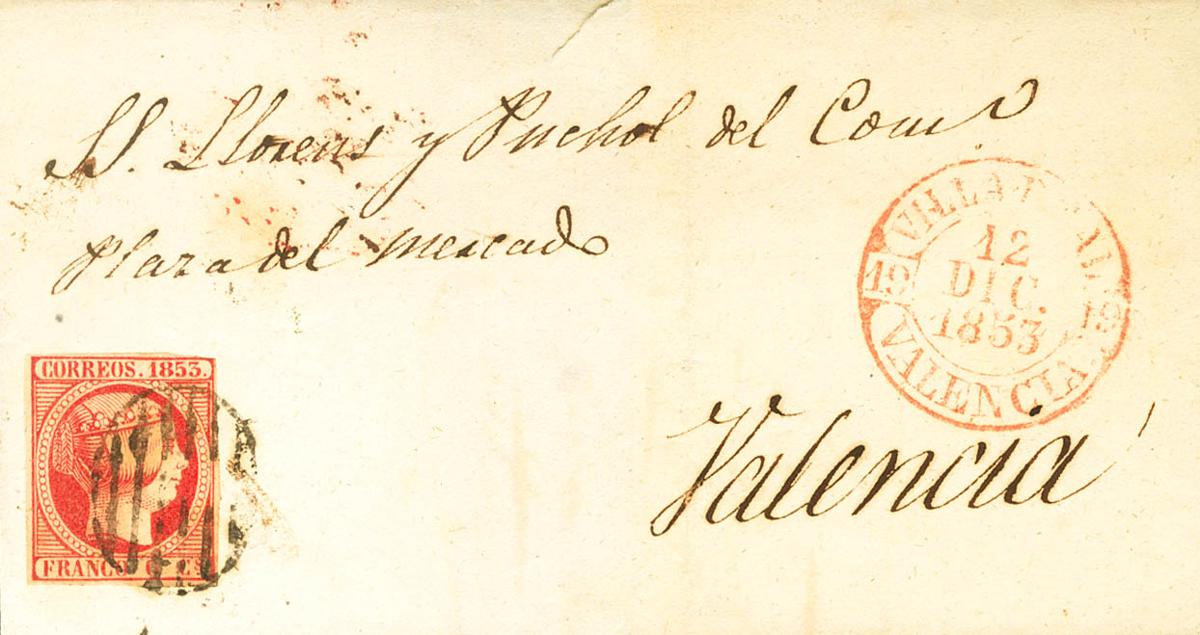 SS. Llorens y Puchol del Comº
Plaza del Mercado
VILLA
19
12
DIC.
1853
19
VALENCIA
CORREOS. 1853.
FRANCO 6 Cs
Valencia